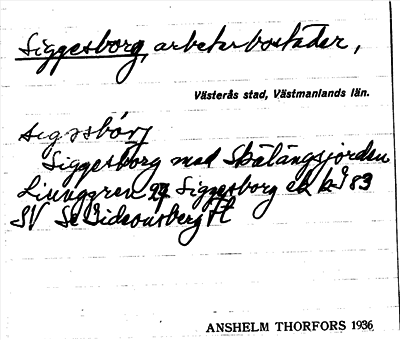 Siggesborg, arbetarbostäder,
Västerås stad, Västmanlands län.
siggesbórj
Siggesborg med Skälängsjorden
Ljunggren 27 Siggesborg ek bl 83
SV Se Gideonsberg
ANSHELM THORFORS 1936